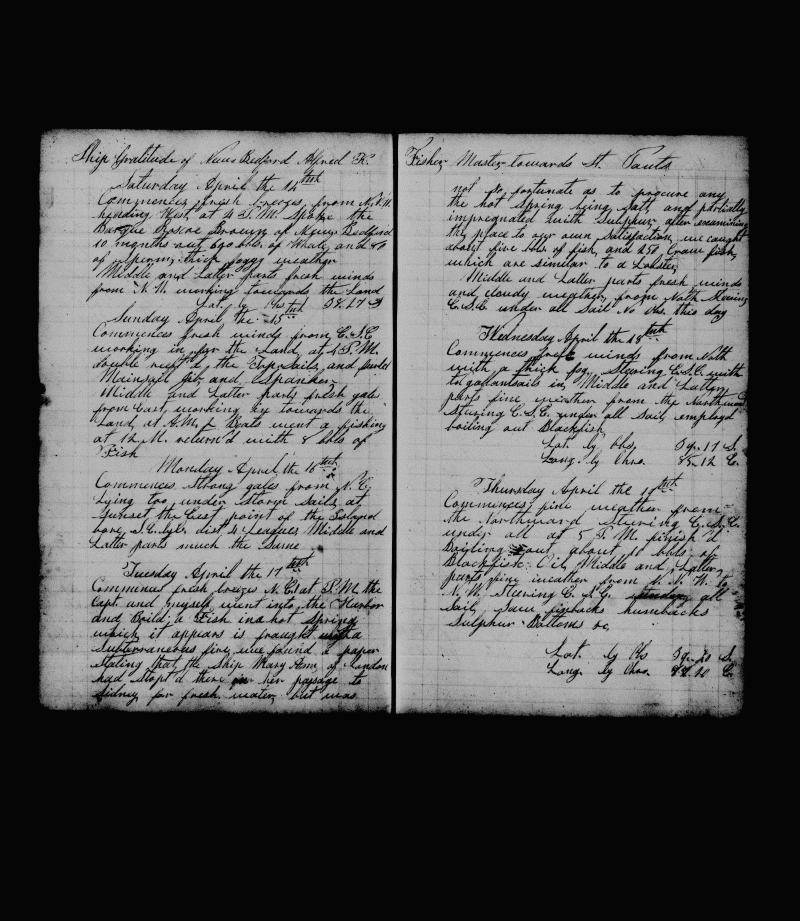 Ship Gratitude of New Bedford Alfred K.
Saturday April the 14th
Commences fresh breezes from N.N.W.
heading West, at 4 P.M. Spoke the
Barque Roscoe Brown of New Bedford
10 months out 600 bbls. of Whale and 80
of Sperm, thick foggy weather
Middle and Latter parts fresh winds
from N.W. working towards the Land
Lat. by Obs 38.17 S
Sunday April the 15th
Commences fresh winds from E.S.E
working in for the Land, at 4 P.M.
double reef'd the Topsails, and furled
Mainsail Jib and Spanker
Middle and Latter parts fresh gales
from East, working up towards the
Land, at A.M. 2 Boats went a fishing
at 12 M. return'd with 8 bbls of
Fish
Monday April the 16th
Commences Strong gales from N.E.
Lying too under Storm Sails, at
Sunset the East point of the Island
bore, dist 4 Leagues Middle and
Latter parts much the Same
Tuesday April the 17th
Commences fresh breezes N.E. at P.M. the
Capt. and myself went into the Harbor
and Boild a Fish in a hot Spring
which it appears is fraught with a
Subterraneous fire, we found a paper
Stating that the Ship Mary Ann, of London
had Stopt'd there in her passage to
Sidney for fresh water, but was
Fisher Master towards St. Pauls
not so fortunate as to procure any
the hot Spring being Salt and partially
impregnated with Sulphur, after examining
the place to our own Satisfaction, we caught
about five bbls of fish, and 250 Craw fish,
which are similar to a Lobster,
Middle and Latter parts fresh winds
and cloudy weather, from North Steering
E.S.E. under all Sail No Obs. this day
Wednesday April the 18th
Commences fresh winds from North
with a thick fog, Steering E.S.E. with
topgallantsails in, Middle and Latter
parts fine weather from the Northward
Steering E.S.E. under all Sail, employd
boiling out Blackfish
Lat. by Obs, 39.17 S.
Long. by Chro. 85.12 E.
Thursday April the 19th
Commences fine weather from
the Northward Steering E.S.E.
under all at 5 P.M. finish'd
Boiling out, about 10 bbls of
Blackfish Oil, Middle and Latter
parts fine weather from N.N.W. to
N.W. Steering E.S.E. under all
Sail, Saw finbacks humbacks
Sulphur Bottoms &c,
Lat. by Obs 39.20 S.
Long. by Chro. 88.10 E.